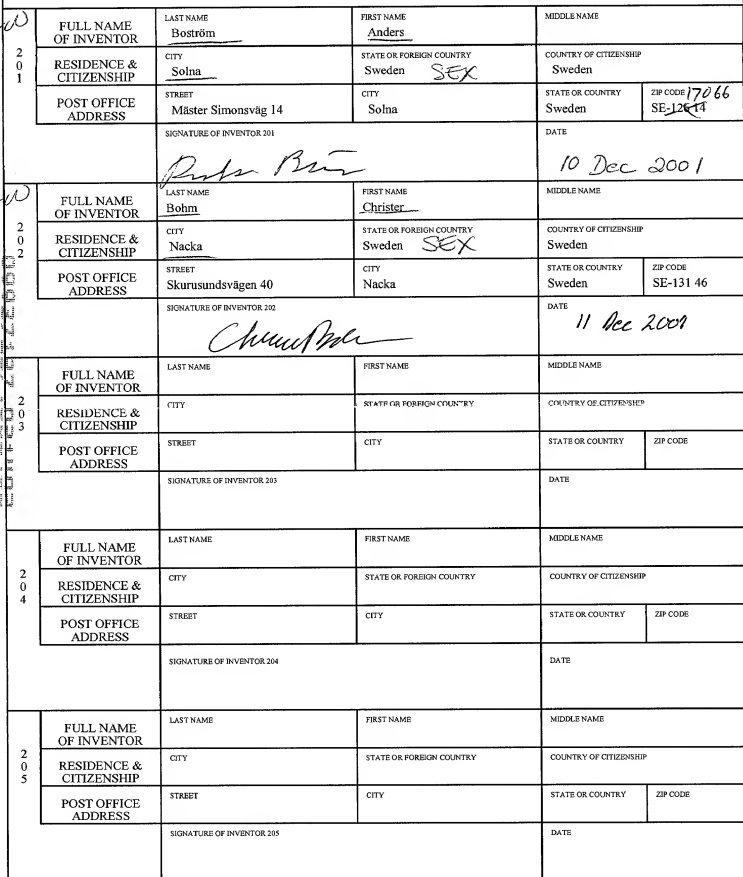 FULL NAME OF INVENTOR
LAST NAME
Boström
FIRST NAME
Anders
MIDDLE NAME
201
RESIDENCE & CITIZENSHIP
CITY
Solna
STATE OR FOREIGN COUNTRY
Sweden SEX
COUNTRY OF CITIZENSHIP
Sweden
POST OFFICE ADDRESS
STREET
Mäster Simonsväg 14
CITY
Solna
STATE OR COUNTRY
Sweden
ZIP CODE 17066
SE-126 14
SIGNATURE OF INVENTOR 201
DATE
10 Dec 2001
FULL NAME OF INVENTOR
LAST NAME
Bohm
FIRST NAME
Christer
MIDDLE NAME
202
RESIDENCE & CITIZENSHIP
CITY
Nacka
STATE OR FOREIGN COUNTRY
Sweden SEX
COUNTRY OF CITIZENSHIP
Sweden
POST OFFICE ADDRESS
STREET
Skurusundsvägen 40
CITY
Nacka
STATE OR COUNTRY
Sweden
ZIP CODE
SE-131 46
SIGNATURE OF INVENTOR 202
DATE
11 Dec 2001
FULL NAME OF INVENTOR
LAST NAME
FIRST NAME
MIDDLE NAME
203
RESIDENCE & CITIZENSHIP
CITY
STATE OR FOREIGN COUNTRY
COUNTRY OF CITIZENSHIP
POST OFFICE ADDRESS
STREET
CITY
STATE OR COUNTRY
ZIP CODE
SIGNATURE OF INVENTOR 203
DATE
FULL NAME OF INVENTOR
LAST NAME
FIRST NAME
MIDDLE NAME
204
RESIDENCE & CITIZENSHIP
CITY
STATE OR FOREIGN COUNTRY
COUNTRY OF CITIZENSHIP
POST OFFICE ADDRESS
STREET
CITY
STATE OR COUNTRY
ZIP CODE
SIGNATURE OF INVENTOR 204
DATE
FULL NAME OF INVENTOR
LAST NAME
FIRST NAME
MIDDLE NAME
205
RESIDENCE & CITIZENSHIP
CITY
STATE OR FOREIGN COUNTRY
COUNTRY OF CITIZENSHIP
POST OFFICE ADDRESS
STREET
CITY
STATE OR COUNTRY
ZIP CODE
SIGNATURE OF INVENTOR 205
DATE